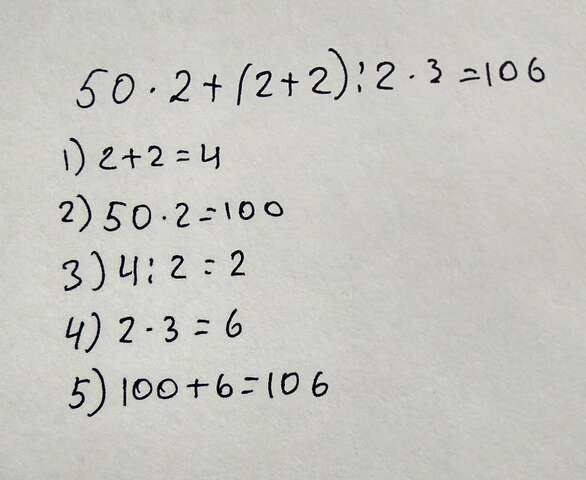 50 · 2 + (2 + 2) : 2 · 3 = 106
1) 2 + 2 = 4
2) 50 · 2 = 100
3) 4 : 2 = 2
4) 2 · 3 = 6
5) 100 + 6 = 106